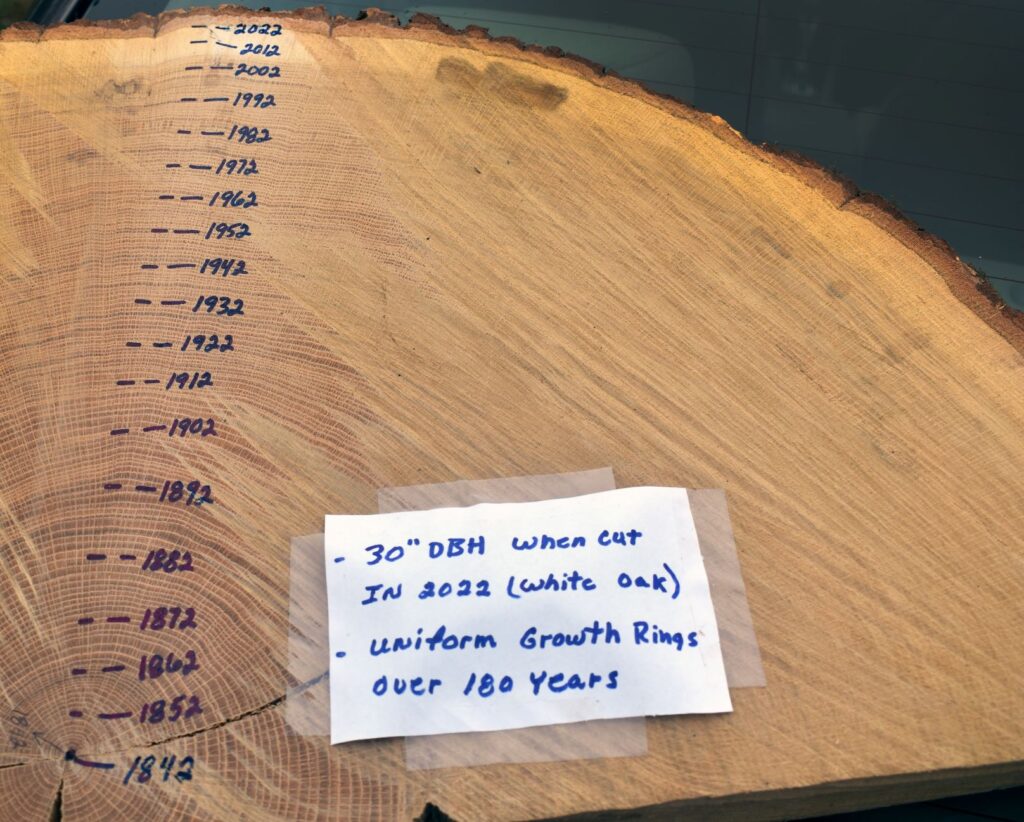 2022
2012
2002
1992
1982
1972
1962
1952
1942
1932
1922
1912
1902
1892
1882
1872
1862
1852
1842
- 30" DBH when cut
IN 2022 (white oak)
- uniform Growth Rings
over 180 Years